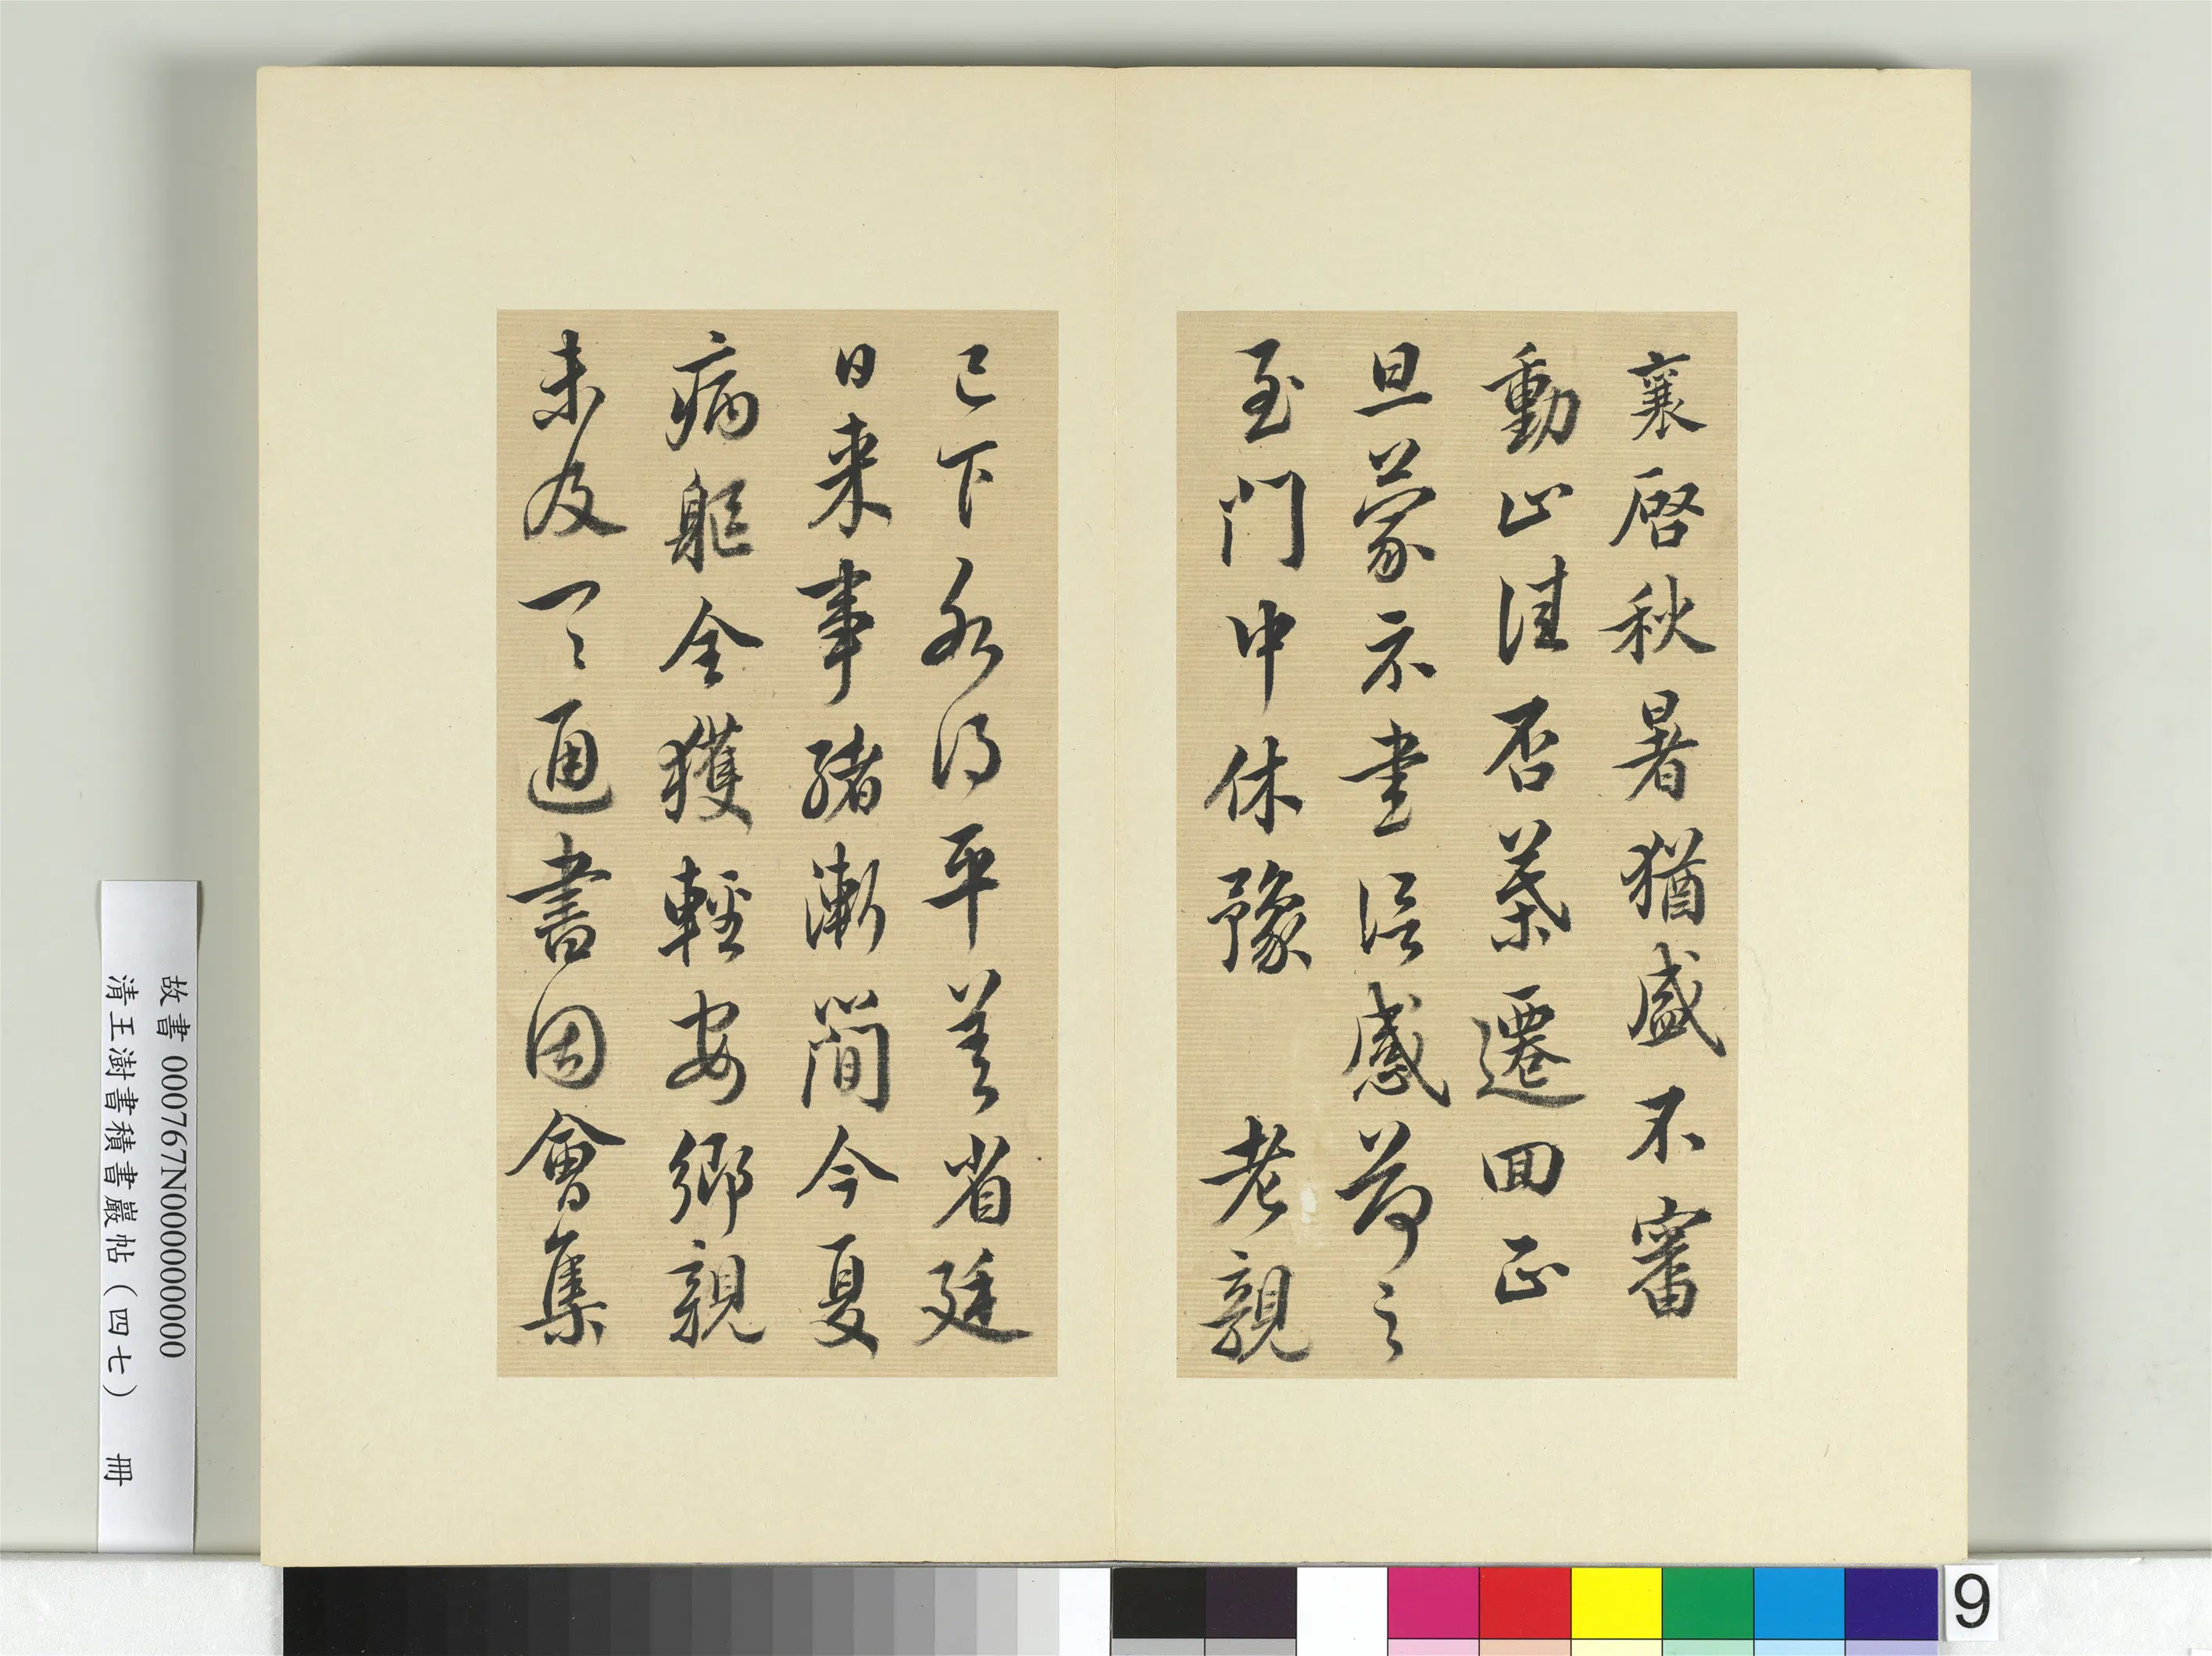 襄啓秋暑猶盛不審
動止佳否葉遷回正
旦蒙示書誨感荷之
至門中休豫 老親
已下各得平善省廷
日来事緒漸簡今夏
病軀全獲輕安鄉親
未及一一通書因會集
故書 000767N000000000
清王澍書積書巖帖（四七） 冊
9